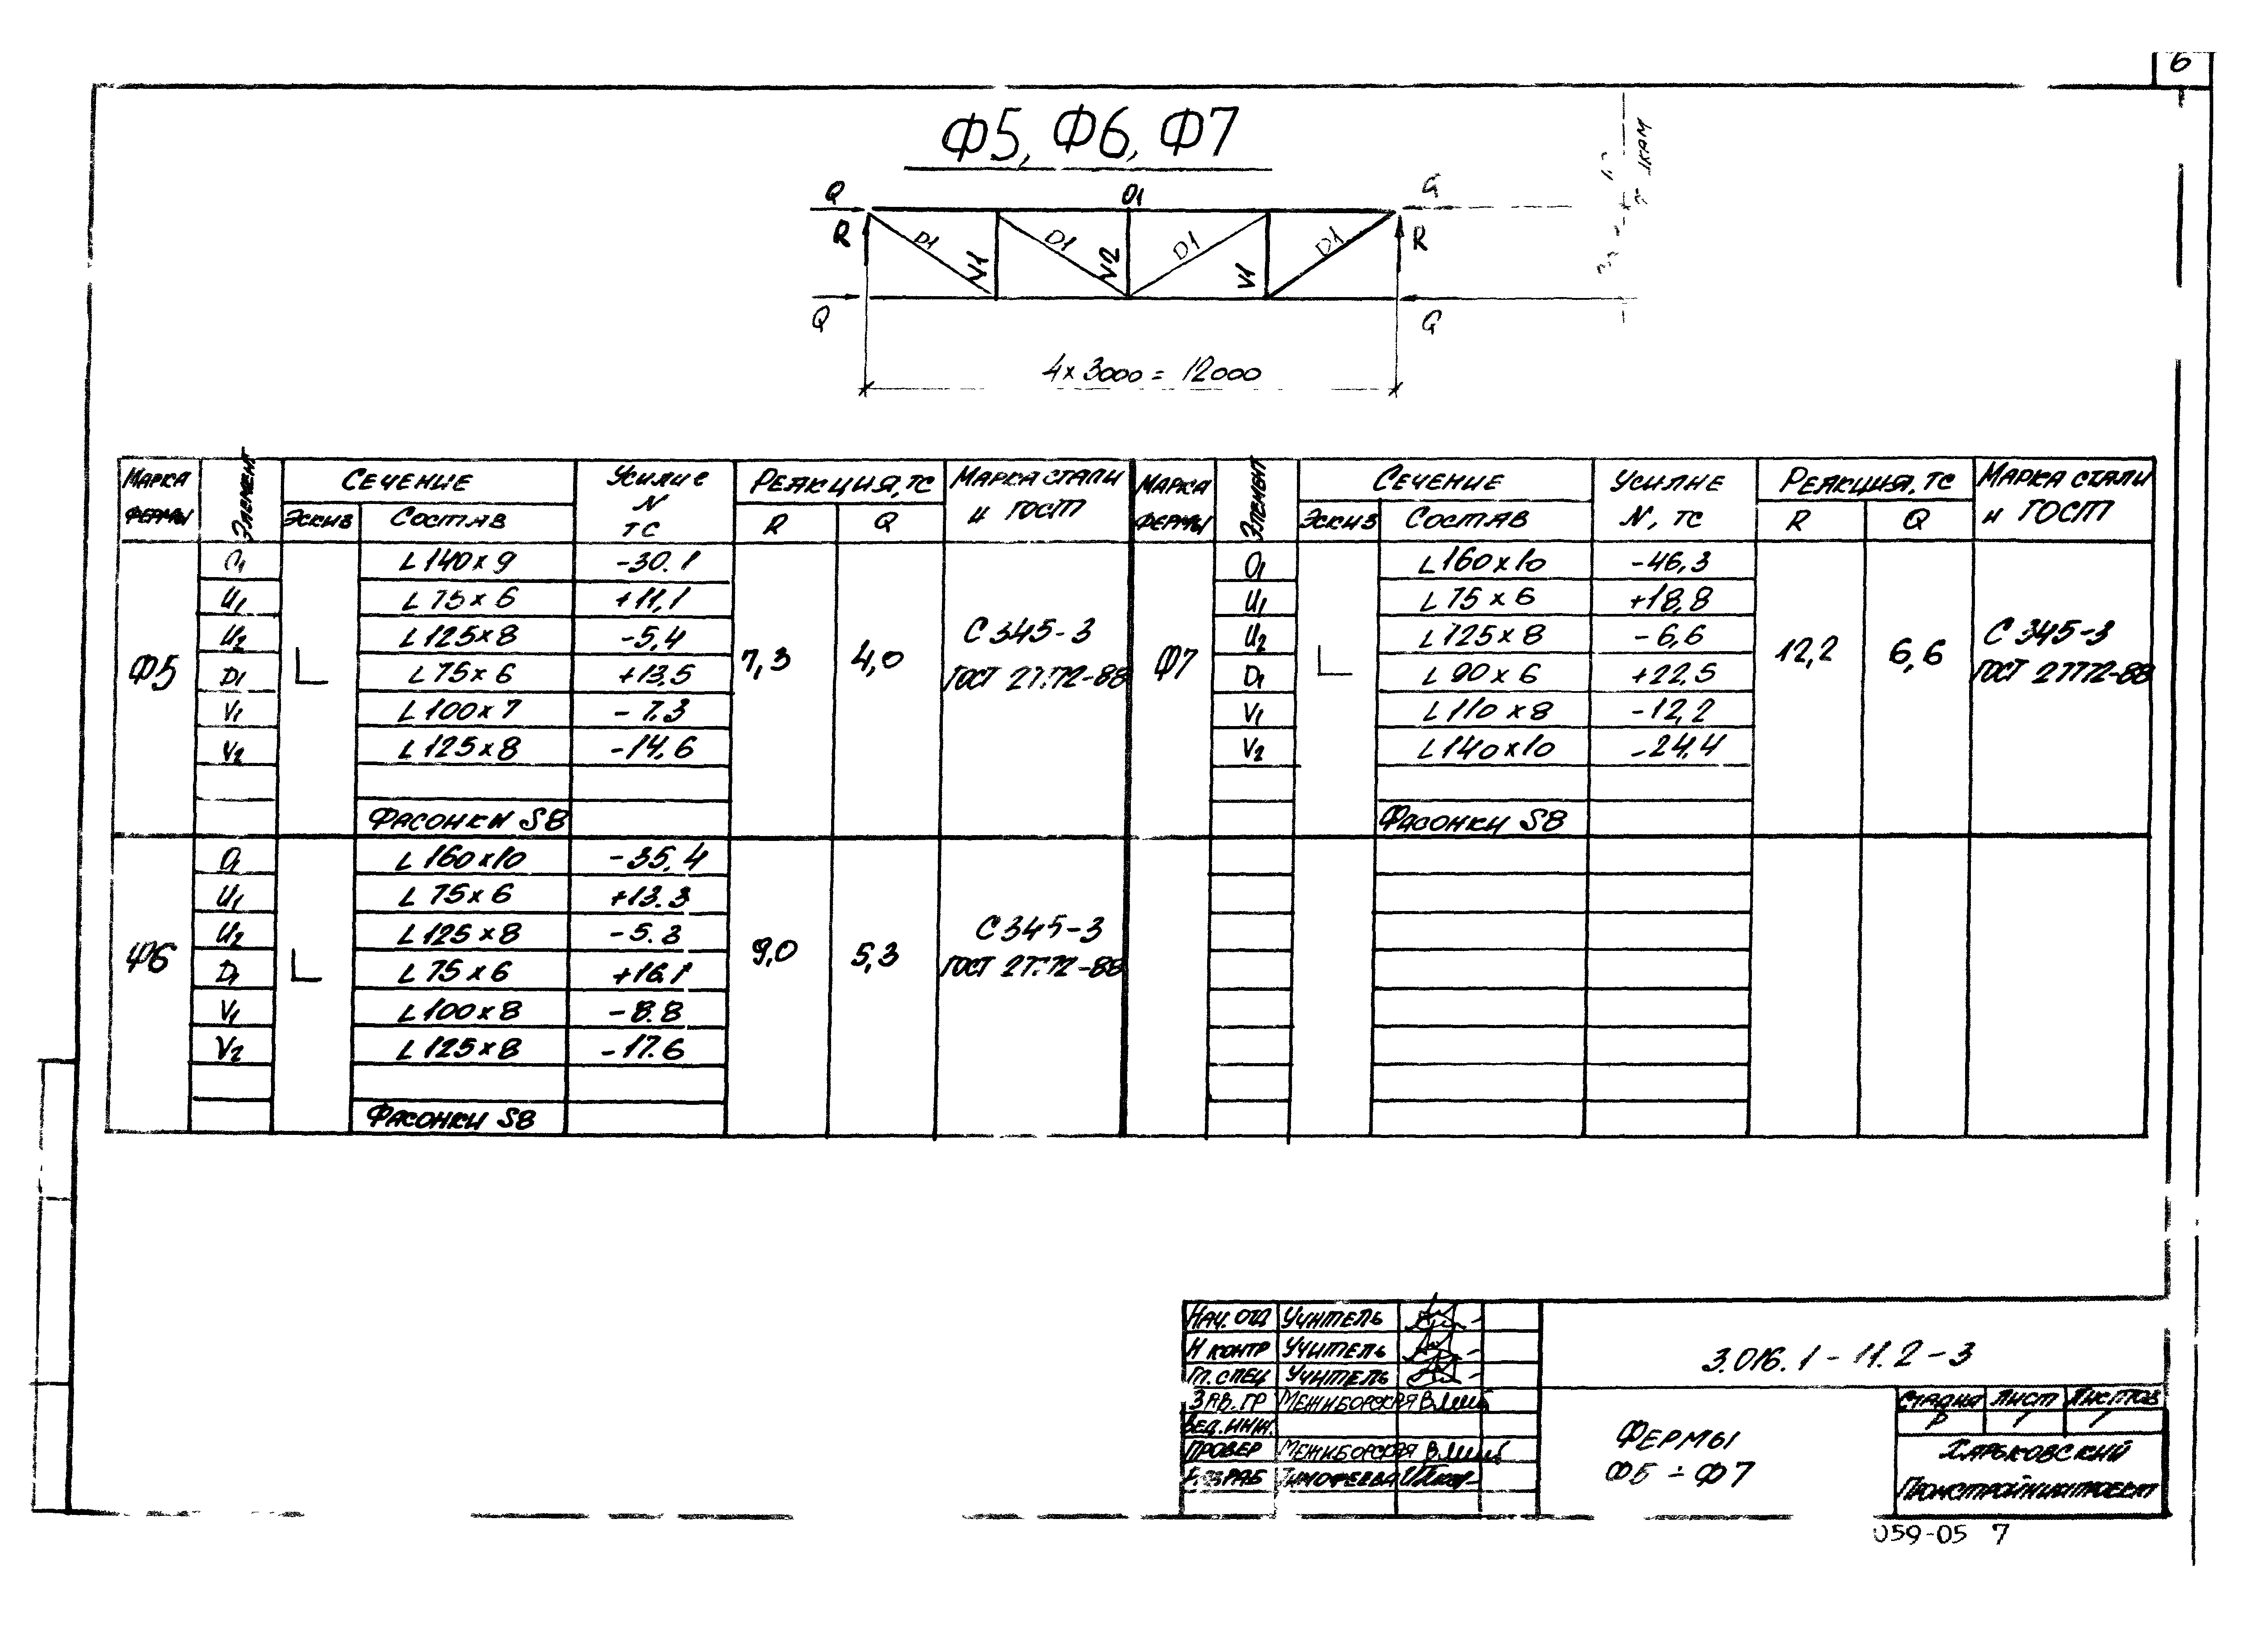 6
Ф5, Ф6, Ф7
Q O1 Q
R D1 V1 D1 V2 D1 V1 D1 R
Q Q
4 x 3000 = 12000
МАРКА ФЕРМЫ ЭЛЕМЕНТ СЕЧЕНИЕ УСИЛИЕ N ТС РЕАКЦИЯ, ТС МАРКА СТАЛИ И ГОСТ
ЭСКИЗ СОСТАВ R Q
Ф5
O1 L 140 x 9 -30.1
U1 L 75 x 6 +11,1
U2 L 125 x 8 -5,4
D1 L 75 x 6 +13,5
V1 L 100 x 7 -7.3
V2 L 125 x 8 -14,6
ФАСОНКИ S8
7,3 4,0
С 345-3
ГОСТ 27772-88
Ф6
O1 L 160 x 10 -35,4
U1 L 75 x 6 +13.3
U2 L 125 x 8 -5.3
D1 L 75 x 6 +16,1
V1 L 100 x 8 -8.8
V2 L 125 x 8 -17.6
ФАСОНКИ S8
9,0 5,3
С 345-3
ГОСТ 27772-88
МАРКА ФЕРМЫ ЭЛЕМЕНТ СЕЧЕНИЕ УСИЛИЕ N, ТС РЕАКЦИЯ, ТС МАРКА СТАЛИ И ГОСТ
ЭСКИЗ СОСТАВ R Q
Ф7
O1 L 160 x 10 -46,3
U1 L 75 x 6 +18,8
U2 L 125 x 8 -6,6
D1 L 90 x 6 +22,5
V1 L 110 x 8 -12,2
V2 L 140 x 10 -24,4
ФАСОНКИ S8
12,2 6,6
С 345-3
ГОСТ 27772-88
НАЧ. ОТД УЧИТЕЛЬ
Н КОНТР УЧИТЕЛЬ
ГЛ. СПЕЦ УЧИТЕЛЬ
ЗАВ. ГР МЕЖИБОРСКАЯ
ВЕД. ИНЖ.
ПРОВЕР МЕЖИБОРСКАЯ
РАЗРАБ ТИМОФЕЕВА
3.016.1 - 11.2 - 3
ФЕРМЫ
Ф5 ÷ Ф7
СТАДИЯ ЛИСТ ЛИСТОВ
Р 1 1
ХАРЬКОВСКИЙ
ПРОМСТРОЙНИИПРОЕКТ
059-05 7